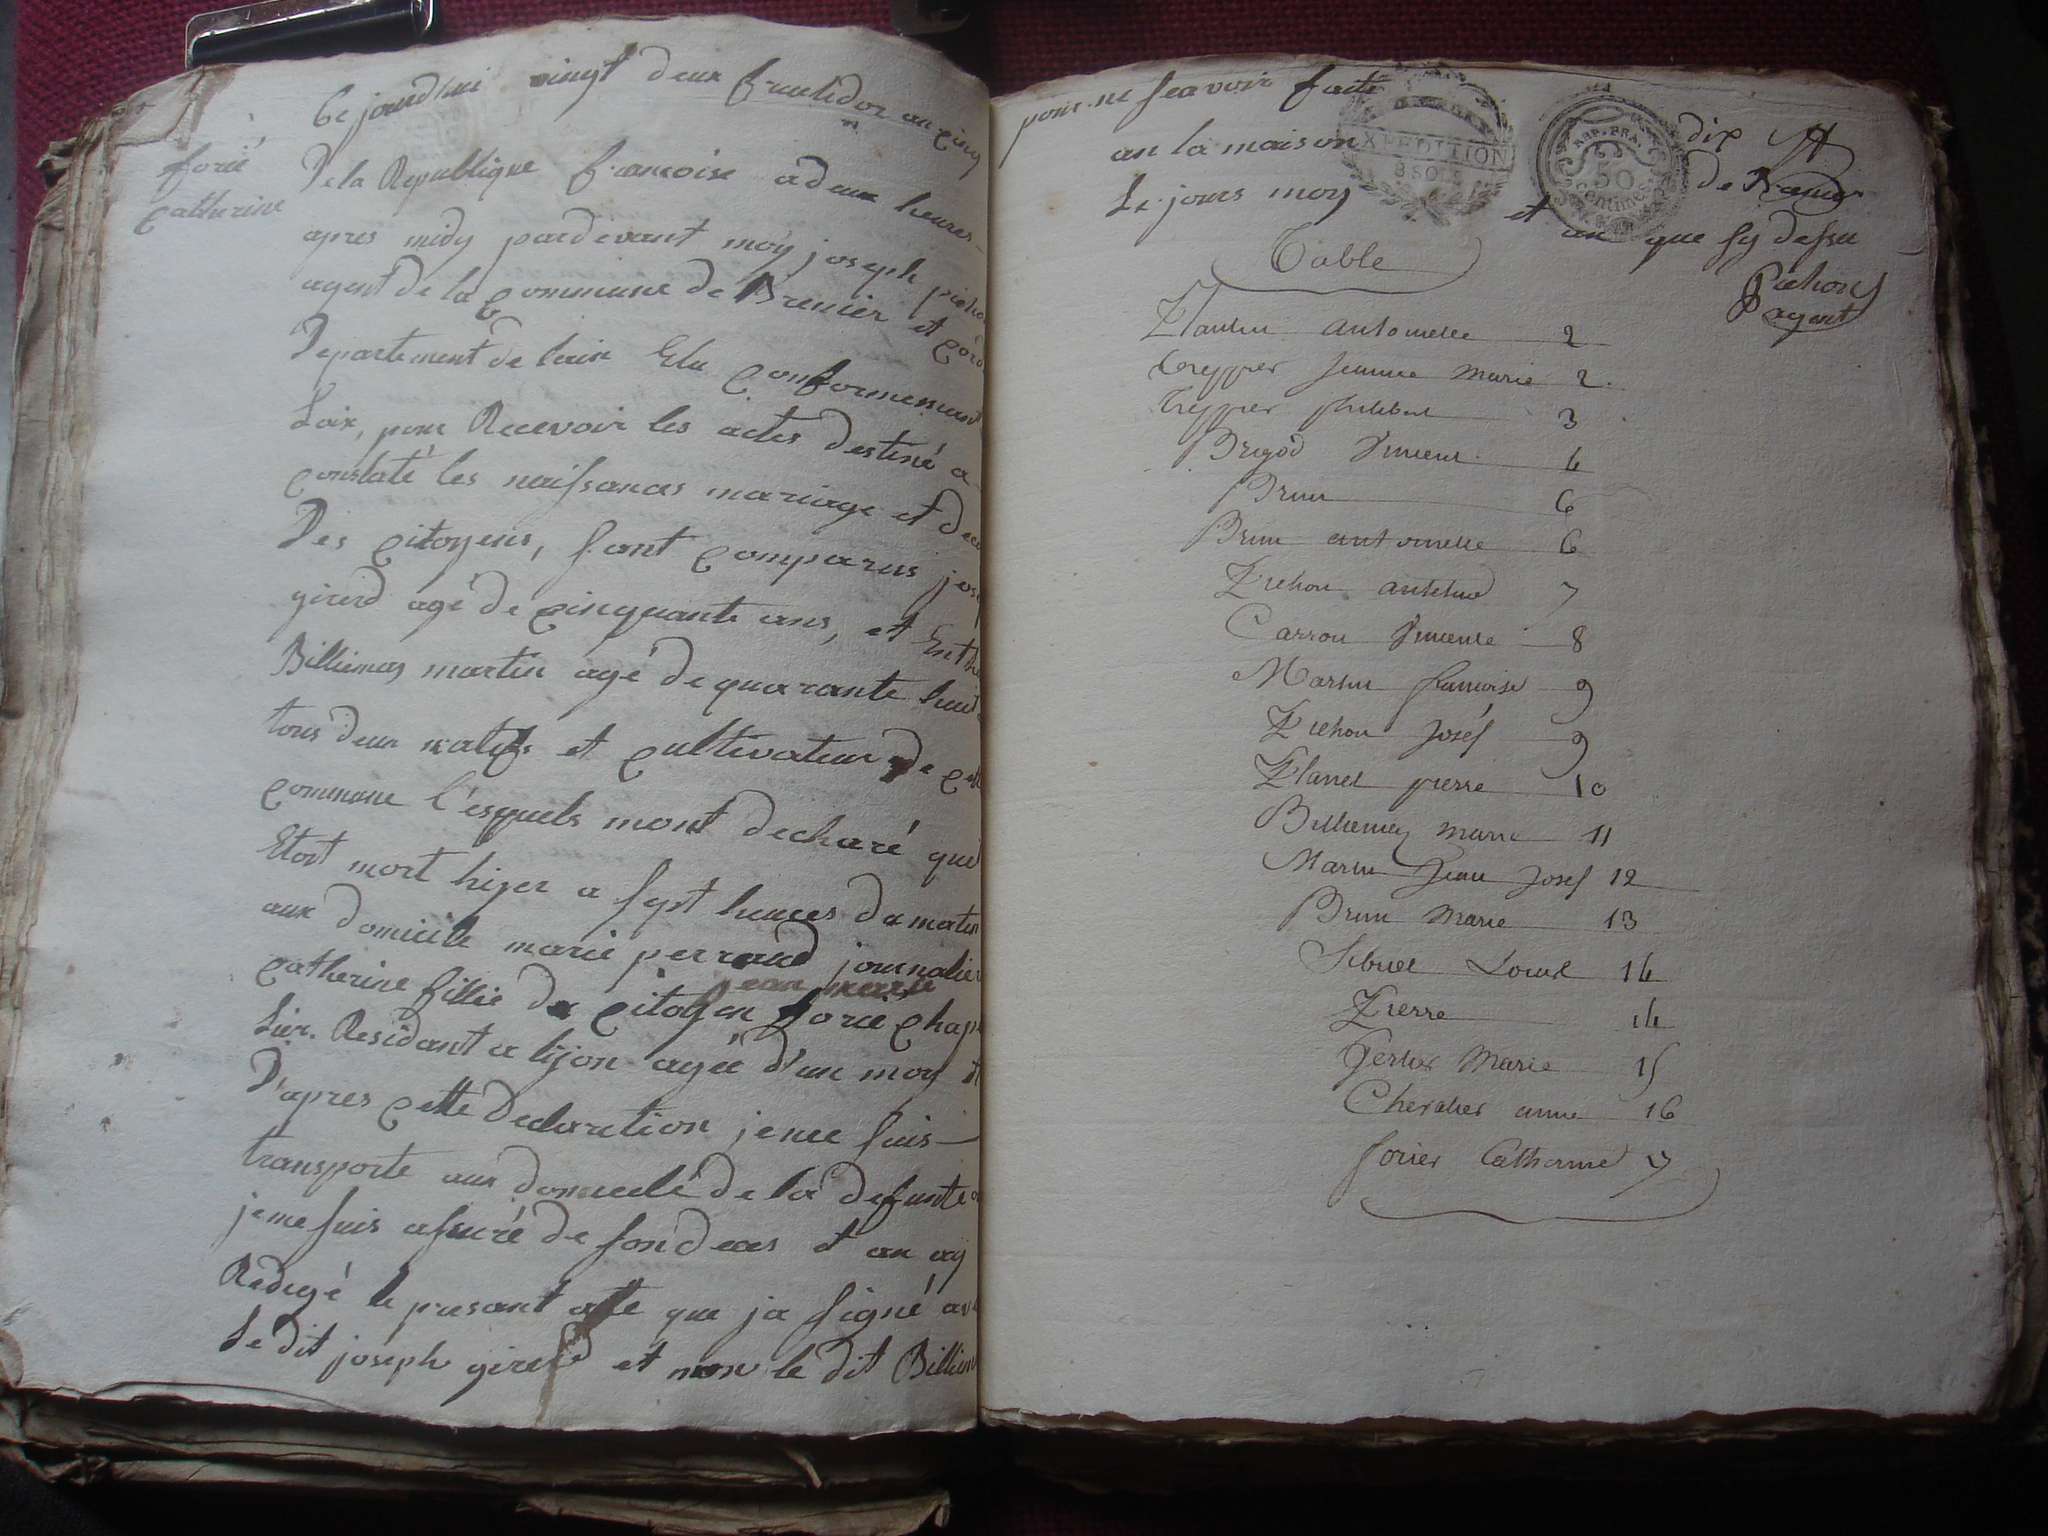 forié
Catherine
Ce jourd'ui vingt deux fructidor an cinq
De la Republique francoise a deux heures
apres midy pardevant moy joseph picho
agent de la commune de Brenier et Cord
Departement de lain Elu conformemant
Loix, pour Recevoir les actes destiné a
constaté les naissances mariage et dece
Des citoyens, sont comparus jos
girerd agé de cinquante ans, et Enthe
Billiemas martin agé de quarante huit
tous deux natifs et cultivateur de cett
commune l'esquels mont decharé que
Etoit mort hiyer a sept heures du matin
aux domicile marie perraud journalier
jean marie
catherine fillie du citoyen forié chap
lier. Residant a lijon agée d'un moy et
D'apres cette Declaration je me suis
transporte aux domicilé de la defunte
je me suis assuré de son deces et an ay
Redigé le presant acte que ja signé av
Le dit joseph girerd et non le dit Billiem
pour ne scavoir faite
an la maison dix de
Le jours moy et an que sy dessu
Pichon
agent
EXPEDITION
8 SOLS
50
centimes
Table
Plantin antoinette 2
Treppier jeanne Marie 2
Treppier philibert 3
Brigod Vincent 4
Brun 6
Brun antoinette 6
Pichon anthelme 7
Carron Vincente 8
Martin francoise 9
Pichon Josef 9
Planet pierre 10
Billiemaz marie 11
Martin Jean Josef 12
Brun Marie 13
Sibuet Louise 14
Pierre 14
Marie 15
Chevalier anne 16
forier Catherine 17